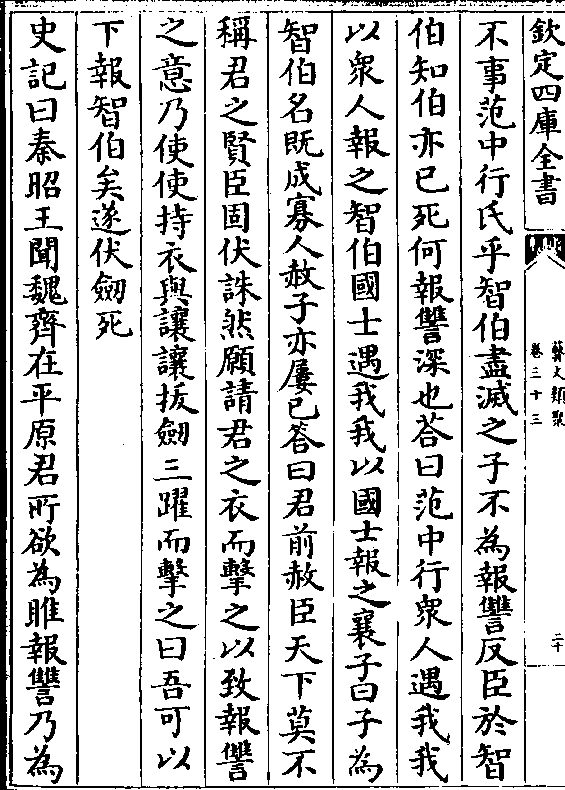 欽定四庫全書
藝文類聚
卷三十三
二十
不事范中行氏乎智伯盡滅之子不為報讐反臣於智
伯知伯亦已死何報讐深也荅曰范中行衆人遇我我
以衆人報之智伯國士遇我我以國士報之襄子曰子為
智伯名既成寡人赦子亦屢已答曰君前赦臣天下莫不
稱君之賢臣固伏誅然願請君之衣而擊之以致報讐
之意乃使使持衣與讓讓拔劒三躍而擊之曰吾可以
下報智伯矣遂伏劒死
史記曰秦昭王聞魏齊在平原君所欲為雎報讐乃為